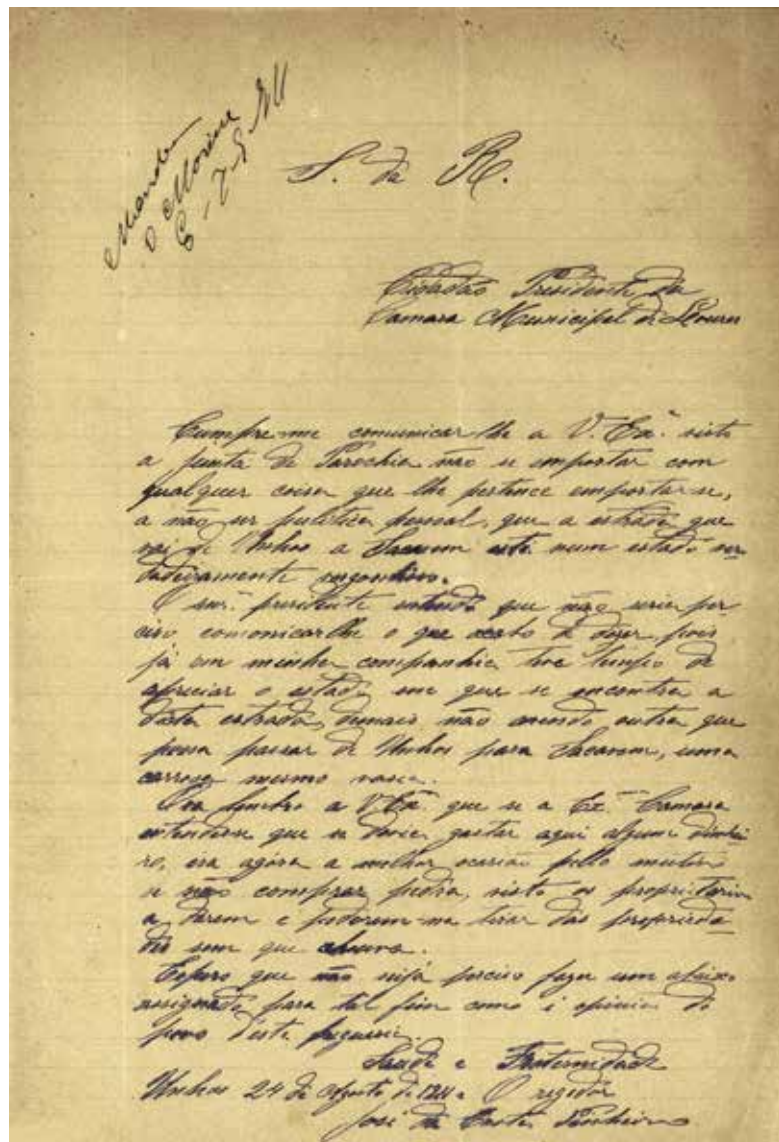 Mandei
o Morine
6-7-911
S. da R.
Cidadão Presidente da
Camara Municipal de Loures
Cumpre-me comunicar lhe a V. Exª. visto
a junta de Parochia não se importar com
qualquer coisa que lhe pertence emportar-se,
a não ser pulitica pesoal, que a estrada que
vai de Unhos a Sacavem está num estado ver
dadeiramente vergonhoso.
O snr. presidente entendo que não seria per
ciso comonicarlhe o que acabo de dizer, pois
já em minha companhia teve tempo de
apreciar o estado em que se encontra a
dita estrada, demais não avendo outra que
possa passar de Unhos para Sacavem, uma
carroça mesmo vasia.
Ora lembro a V. Exª. que se a Exmª. Camara
entendese que se devia gastar aqui algum dinhei
ro, era agora a melhor ocasião pello mutivo
se não comprar pedra, visto os proprietarios
a darem e puderem-na tirar das propriada
des sem que chuva.
Espero que não seija perciso fazer um abaixo
assignado para tal fim como é opinião do
povo desta freguesia.
Saude e Fraternidade
Unhos 24 de Agosto de 1911. O regedor
José da Costa Pinheiro